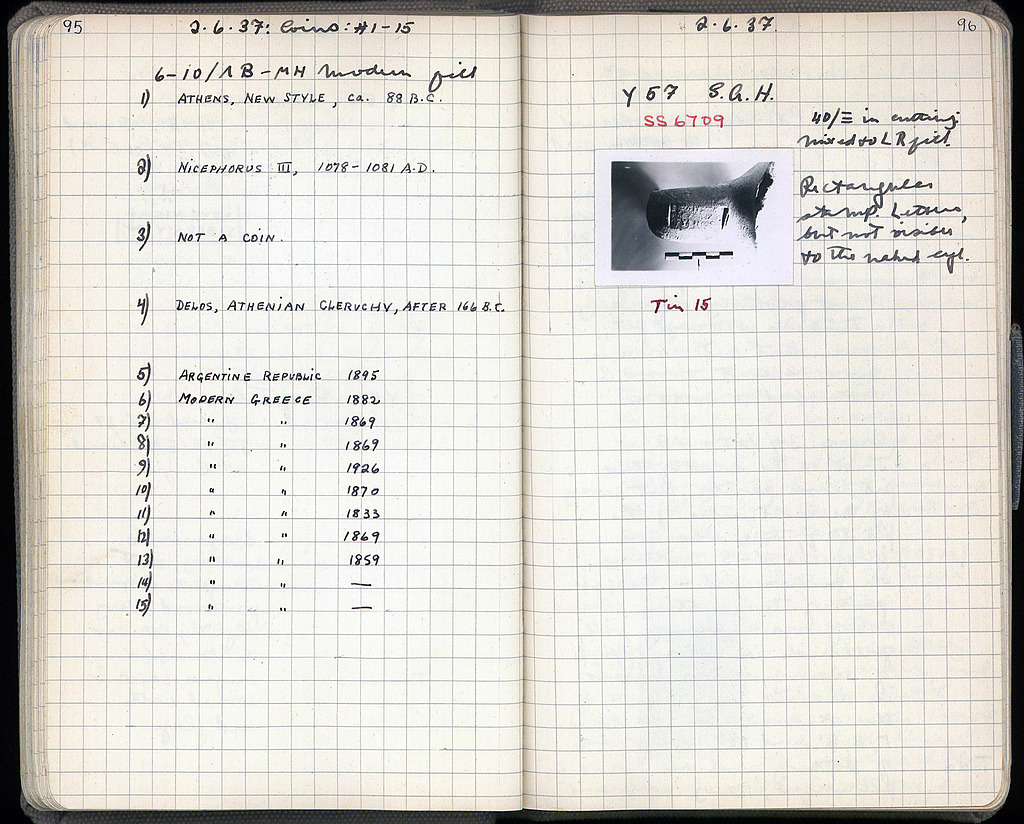 95
2·6·37: Coins: #1-15
6-10/ΛB-MH Modern fill
1) ATHENS, NEW STYLE, ca. 88 B.C.
2) NICEPHORUS III, 1078-1081 A.D.
3) NOT A COIN.
4) DELOS, ATHENIAN CLERUCHY, AFTER 166 B.C.
5) ARGENTINE REPUBLIC 1895
6) MODERN GREECE 1882
7) " " 1869
8) " " 1869
9) " " 1926
10) " " 1870
11) " " 1833
12) " " 1869
13) " " 1859
14) " " —
15) " " —
2·6·37.
96
Y 57 S.A.H.
SS 6709
40/Ξ in cutting
mixed to LR fill.
Rectangular
stamp. Letters,
but not visible
to the naked eye.
Tin 15